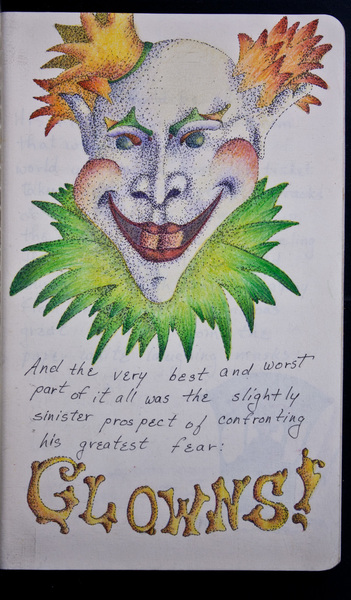 And the very best and worst
part of it all was the slightly
sinister prospect of confronting
his greatest fear:
CLOWNS!